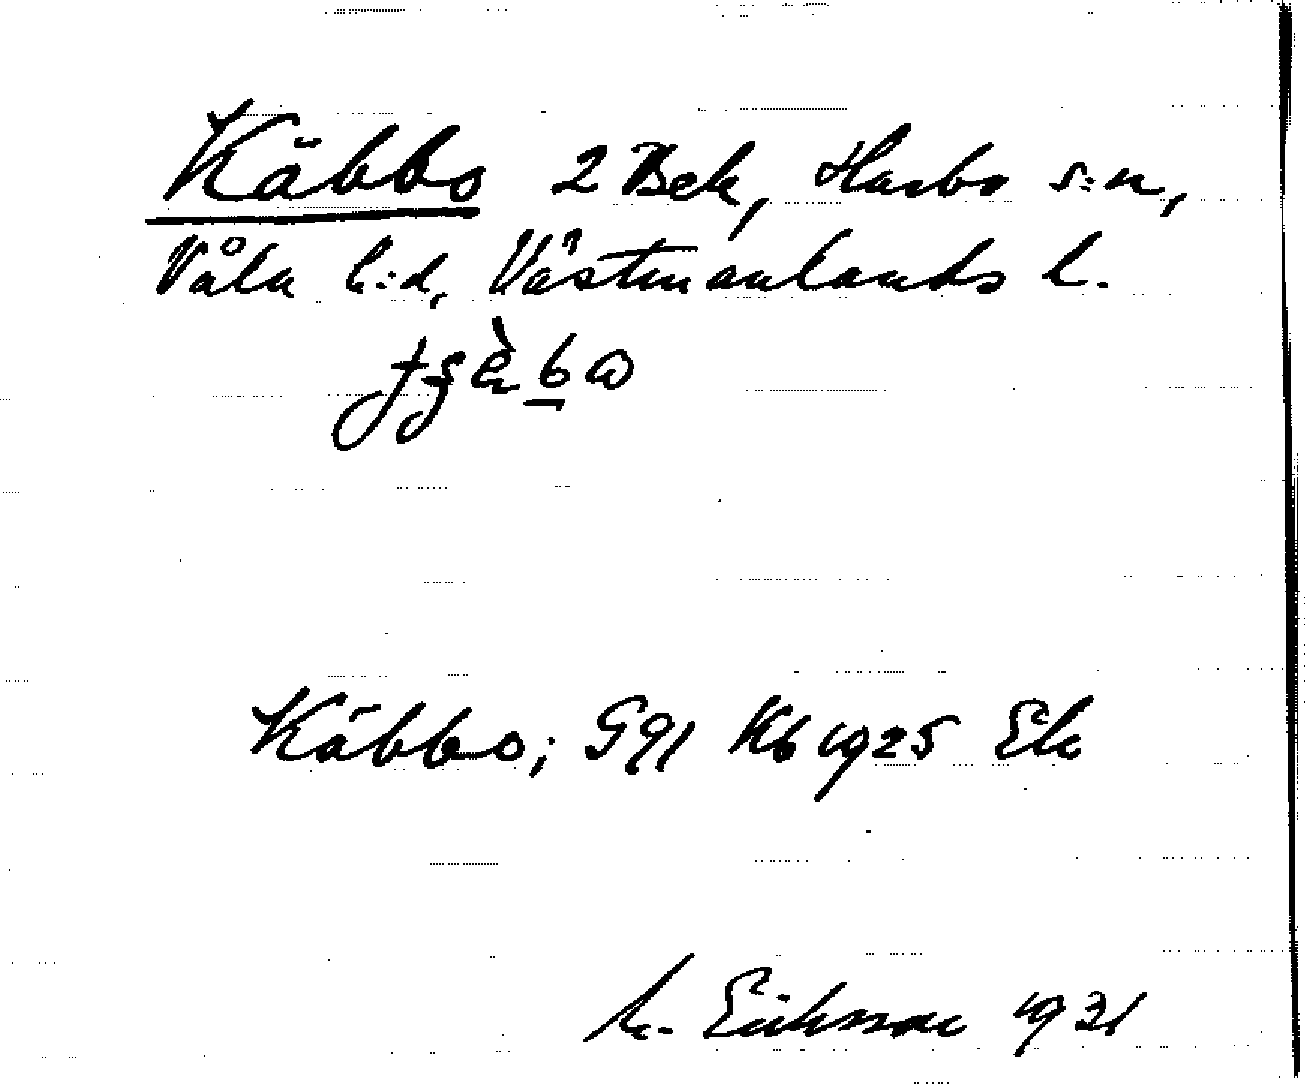 Käbbo 2 Bek, Harbo s:n,
Våla h:d, Västmanlands l.
Käbbo; G91 Kb 1925 Ek
M. Eriksson 1931